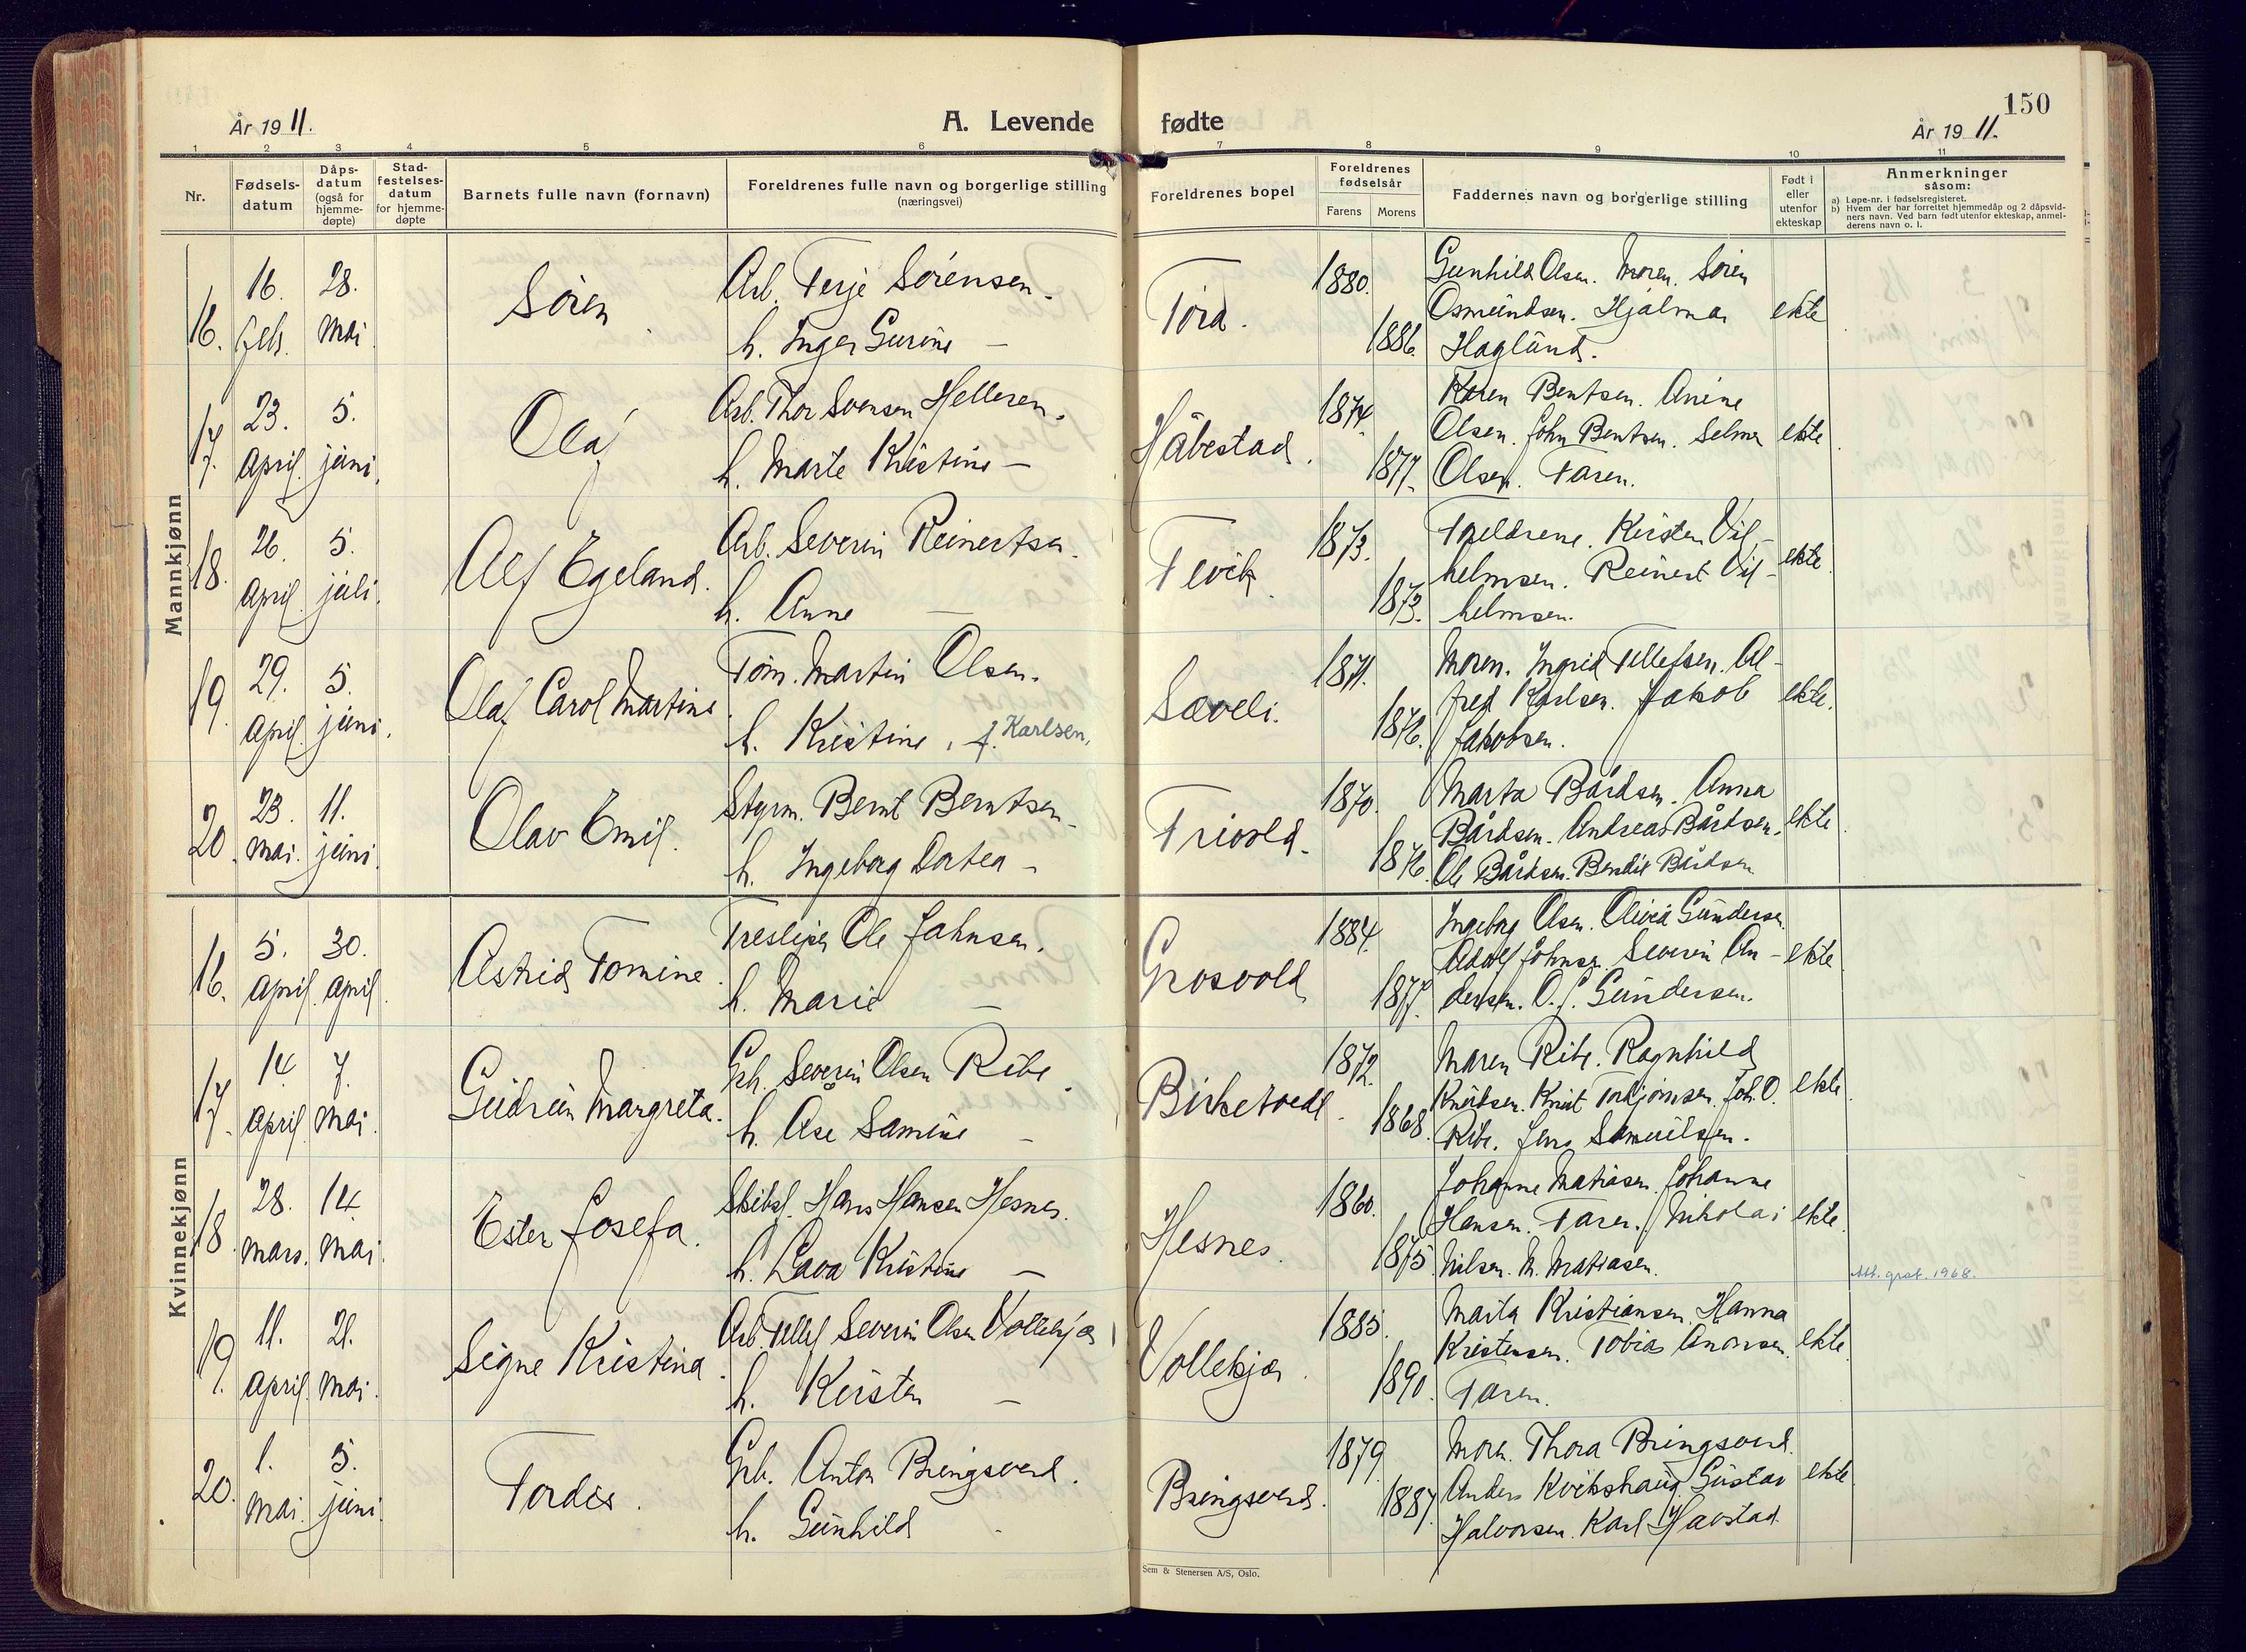 År 19 11.
A. Levende
fødte
150
År 19 11.
1 2 3 4 5 6 7 8 9 10 11
Nr.
Fødsels-
datum
Dåps-
datum
(også for
hjemme-
døpte)
Stad-
festelses-
datum
for hjemme-
døpte
Barnets fulle navn (fornavn)
Foreldrenes fulle navn og borgerlige stilling
(næringsvei)
Foreldrenes bopel
Foreldrenes
fødselsår
Farens Morens
Faddernes navn og borgerlige stilling
Født i
eller
utenfor
ekteskap
Anmerkninger
såsom:
a) Løpe-nr. i fødselsregisteret.
b) Hvem der har forrettet hjemmedåp og 2 dåpsvid-
ners navn. Ved barn født utenfor ekteskap, anmel-
derens navn o. l.
Mannkjønn
16. 16. febr. 28. mai
Søren
Arb. Terje Sörensen.
h. Inger Gurine —
Tora.
1880.
1886.
Gunhild Olsen. Moren. Sören
Osmundsen. Hjalmar
Hagland.
ekte
17. 23. april. 5. juni.
Olaf
Arb. Thor Svensen Helleren.
h. Marte Kristine —
Håbestad.
1874.
1877.
Karen Bentsen. Anine
Olsen. John Bentsen. Selmer
Olsen. Faren.
ekte
18. 26. april. 5. juli.
Alf Egeland.
Arb. Severin Reinertsen.
h. Anne —
Fevik.
1873.
1873.
Foreldrene. Kirsten Vil-
helmsen. Reinert Vil-
helmsen.
ekte.
19. 29. april. 5. juni.
Olaf Carol Martins.
Töm. Martin Olsen.
h. Kristine, f. Karlsen.
Sæveli.
1871.
1876.
Moren. Ingrid Tellefsen. Al-
fred Karlsen. Jakob
Jakobsen.
ekte.
20. 23. mai. 11. juni.
Olav Emil.
Styrm. Bernt Berntsen
h. Ingeborg Dortea —
Trivold.
1870.
1876.
Marta Bårdsen. Anna
Bårdsen. Andreas Bårdsen.
Ole Bårdsen. Bendix Bårdsen
ekte.
Kvinnekjønn
16. 5. april. 30. april.
Astrid Tomine.
Tresliper Ole Johnsen.
h. Marie —
Grosvold
1884.
1877.
Ingeborg Olsen. Olivia Gundersen.
Adolf Johnsen. Severin An-
dersen. O. J. Gundersen.
ekte
17. 14. april. 7. mai.
Gudrun Margreta.
Gb. Severin Olsen Ribe.
h. Åse Samine —
Birketvedt.
1872.
1868.
Maren Ribe. Ragnhild
Knudsen. Knut Torbjörnsen. Joh. O.
Ribe. Jens Samuelsen.
ekte.
18. 28. mars. 14. mai.
Ester Josefa.
Skibsf. Hans Hansen Hesnes.
h. Lava Kristine —
Hesnes.
1860.
1875.
Johanne Matiasen. Johanne
Hansen. Faren. Nikolai
Nilsen. M. Matiasen.
ekte.
Att. grat. 1968.
19. 11. april. 21. mai.
Signe Kristina.
Arb. Tellef Severin Olsen Vollekjær
h. Kirsten —
Vollekjær.
1885.
1890.
Marta Kristiansen. Hanna
Kristensen. Tobias Aronsen.
Faren.
ekte.
20. 1. mai. 5. juni.
Tordis.
Gb. Anton Bringsverd.
h. Gunhild -
Bringsverd.
1879
1887.
Moren. Thora Bringsverd.
Anders Kvikshaug. Gustav
Halvorsen. Karl Havstad.
ekte.
Sem & Stenersen A/S, Oslo.